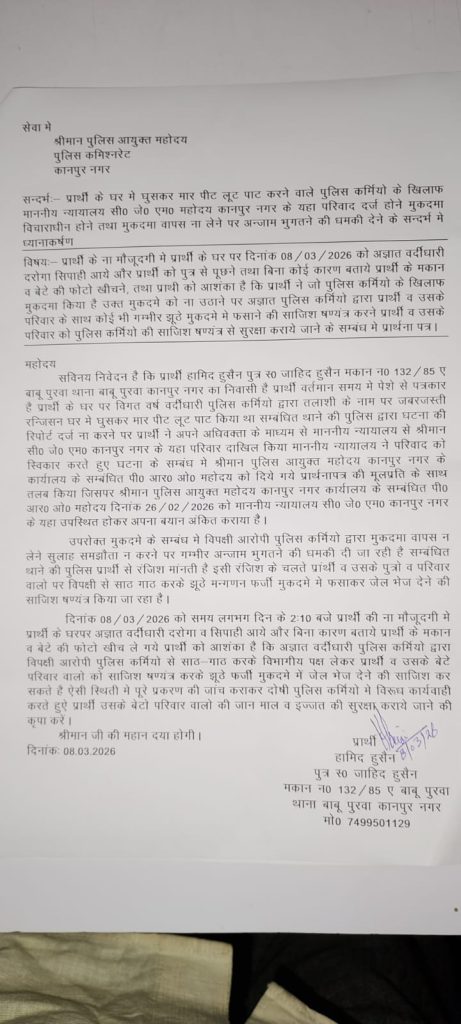 सेवा मे
श्रीमान पुलिस आयुक्त महोदय
पुलिस कमिश्नरेट
कानपुर नगर
सन्दर्भः– प्रार्थी के घर मे घुसकर मार पीट लूट पाट करने वाले पुलिस कर्मियो के खिलाफ
माननीय न्यायालय सी० जे० एम० महोदय कानपुर नगर के यहा परिवाद दर्ज होने मुकदमा
विचाराधीन होने तथा मुकदमा वापस ना लेने पर अन्जाम भुगतने की धमकी देने के सन्दर्भ मे
ध्यानाकर्षण
विषयः– प्रार्थी के ना मौजूदगी मे प्रार्थी के घर पर दिनांक 08/03/2026 को अज्ञात वर्दीधारी
दरोगा सिपाही आये और प्रार्थी को पुत्र से पूछने तथा बिना कोई कारण बताये प्रार्थी के मकान
व बेटे की फोटो खीचने, तथा प्राथी को आशंका है कि प्रार्थी ने जो पुलिस कर्मियो के खिलाफ
मुकदमा किया है उक्त मुकदमे को ना उठाने पर अज्ञात पुलिस कर्मियो द्वारा प्रार्थी व उसके
परिवार के साथ कोई भी गम्भीर झूठे मुकदमे मे फसाने की साजिश षण्यंत्र करने प्रार्थी व उसके
परिवार को पुलिस कर्मियो की साजिश षण्यंत्र से सुरक्षा कराये जाने के सम्बंध मे प्रार्थना पत्र।
महोदय
सविनय निवेदन है कि प्रार्थी हामिद हुसैन पुत्र स्र० जाहिद हुसैन मकान न0 132/85 ए
बाबू पुरवा थाना बाबू पुरवा कानपुर नगर का निवासी है प्रार्थी वर्तमान समय मे पेशे से पत्रकार
है प्रार्थी के घर पर विगत वर्ष वर्दीधारी पुलिस कर्मियो द्वारा तलाशी के नाम पर जबरजस्ती
रन्जिसन घर मे घुसकर मार पीट लूट पाट किया था सम्बंधित थाने की पुलिस द्वारा घटना की
रिपोर्ट दर्ज ना करने पर प्रार्थी ने अपने अधिवक्ता के माध्यम से माननीय न्यायालय से श्रीमान
सी० जे० एम० कानपुर नगर के यहा परिवाद दाखिल किया माननीय न्यायालय ने परिवाद को
स्विकार करते हुए घटना के सम्बंध मे श्रीमान पुलिस आयुक्त महोदय कानपुर नगर के
कार्यालय के सम्बंधित पी० आर० ओ० महोदय को दिये गये प्रार्थनापत्र की मूलप्रति के साथ
तलब किया जिसपर श्रीमान पुलिस आयुक्त महोदय कानपुर नगर कार्यालय के सम्बंधित पी०
आर० ओ० महोदय दिनांक 26/02/2026 को माननीय न्यायालय सी० जे० एम० कानपुर नगर
के यहा उपस्थित होकर अपना बयान अंकित कराया है।
उपरोक्त मुकदमे के सम्बंध मे विपक्षी आरोपी पुलिस कर्मियो द्वारा मुकदमा वापस न
लेने सुलाह समझौता न करने पर गम्भीर अन्जाम भुगतने की धमकी दी जा रही है सम्बंधित
थाने की पुलिस प्रार्थी से रंजिश मांनती है इसी रंजिश के चलते प्रांर्थी व उसके पुत्रो व परिवार
वालो पर विपक्षी से साठ गाठ करके झूठे मन्गणन फर्जी मुकदमे मे फसाकर जेल भेज देने की
साजिश षण्यंत्र किया जा रहा है।
दिनांक 08/03/2026 को समय लगभग दिन के 2:10 बजे प्रार्थी की ना मौजूदगी मे
प्रार्थी के घरपर अज्ञात वर्दीधारी दरोगा व सिपाही आये और बिना कारण बताये प्रार्थी के मकान
व बेटे की फोटो खीच ले गये प्रार्थी को आशंका है कि अज्ञात वर्दीधारी पुलिस कर्मियो द्वारा
विपक्षी आरोपी पुलिस कर्मियो से साठ–गाठ करके विभागीय पक्ष लेकर प्रार्थी व उसके बेटे
परिवार वालो को साजिश षण्यंत्र करके झूठे फर्जी मुकदमे मे जेल भेज देने की साजिश कर
सकते हैं ऐसी स्थिती मे पूरे प्रकरण की जांच कराकर दोषी पुलिस कर्मियो मे विरूध कार्यवाही
करते हुऐ प्रार्थी उसके बेटो परिवार वालो की जान माल व इज्जत की सुरक्षा कराये जाने की
कृपा करें।
श्रीमान जी की महान दया होगी।
दिनांकः 08.03.2026
प्रार्थी
8/03/26
हामिद हुसैन
पुत्र स्र० जाहिद हुसैन
मकान न0 132/85 ए बाबू पुरवा
थाना बाबू पुरवा कानपुर नगर
मो0 7499501129